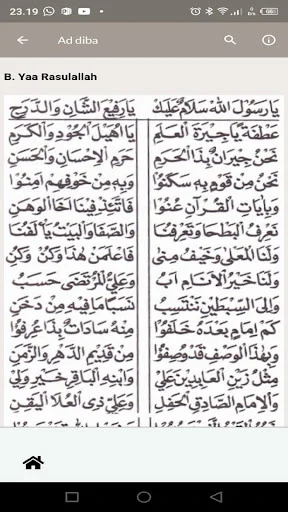 23.19
Ad diba
B. Yaa Rasulallah
يَارَسُوْلَ اللهِ سَلَامٌ عَلَيْكَ يَارَفِيْعَ الشَّانِ وَالدَّرَجِ
عَطْفَةً يَاجِيْرَةَ الْعَلَمِ يَا اُهَيْلَ الْجُوْدِ وَالْكَرَمِ
نَحْنُ جِيْرَانٌ بِذَا الْحَرَمِ حَرَمِ الْاِحْسَانِ وَالْحَسَنِ
نَحْنُ مِنْ قَوْمٍ بِهِ سَكَنُوْا وَبِهِ مِنْ خَوْفِهِمْ اَمِنُوْا
وَبِاٰيَاتِ الْقُرْاٰنِ عُنُوْا فَاتَّئِدْ فِيْنَا اَخَا الْوَهَنِ
نَعْرِفُ الْبَطْحَا وَتَعْرِفُنَا وَالصَّفَا وَالْبَيْتُ يَأْلَفُنَا
وَلَنَا الْمَعْلٰى وَخَيْفُ مِنٰى فَاعْلَمَنْ هٰذَا وَكُنْ وَكُنِ
وَلَنَا خَيْرُ الْاَنَامِ اَبُ وَعَلِيُّ الْمُرْتَضٰى حَسَبُ
وَاِلَى السِّبْطَيْنِ نَنْتَسِبُ نَسَبًا مَافِيْهِ مِنْ دَخَنِ
كَمْ اِمَامٍ بَعْدَهُ خَلَفُوْا مِنْهُ سَادَاتٌ بِذَا عُرِفُوْا
وَبِهٰذَا الْوَصْفِ قَدْ وُصِفُوْا مِنْ قَدِيْمِ الدَّهْرِ وَالزَّمَنِ
مِثْلُ زَيْنِ الْعَابِدِيْنَ عَلِيْ وَابْنِهِ الْبَاقِرِ خَيْرِ وَلِيْ
وَالْاِمَامِ الصَّادِقِ الْحَفِلِ وَعَلِيٍّ ذِى الْعُلَا الْيَقِنِ